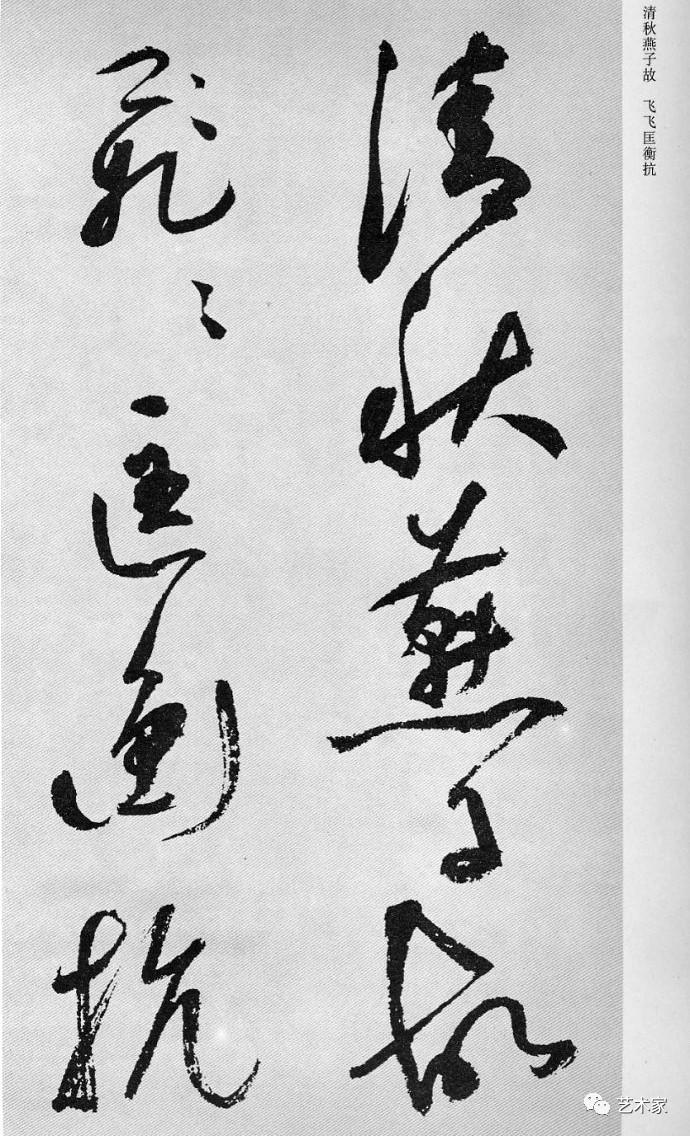 清秋燕子故 飞飞匡衡抗
清秋燕子故
飛〻匡衡抗
艺术家